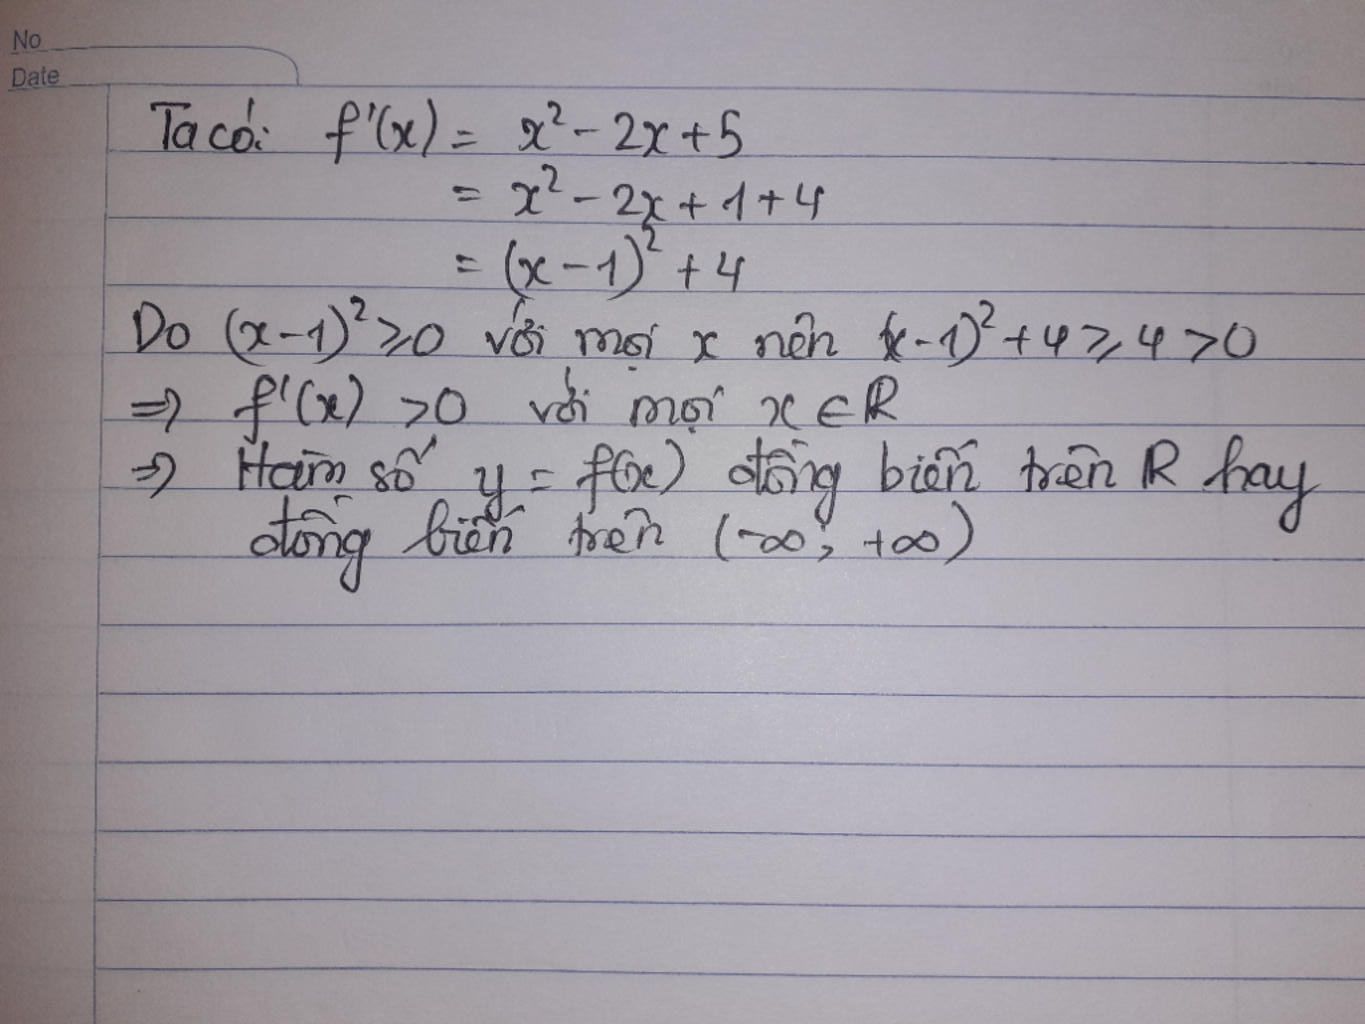 No
Date
Ta có: f'(x) = x² - 2x + 5
= x² - 2x + 1 + 4
= (x - 1)² + 4
Do (x-1)² ⩾ 0 với mọi x nên (x-1)² + 4 ⩾ 4 > 0
⇒ f'(x) > 0 với mọi x ∈ R
⇒ Hàm số y = f(x) đồng biến trên R hay
đồng biến trên (-∞; +∞)